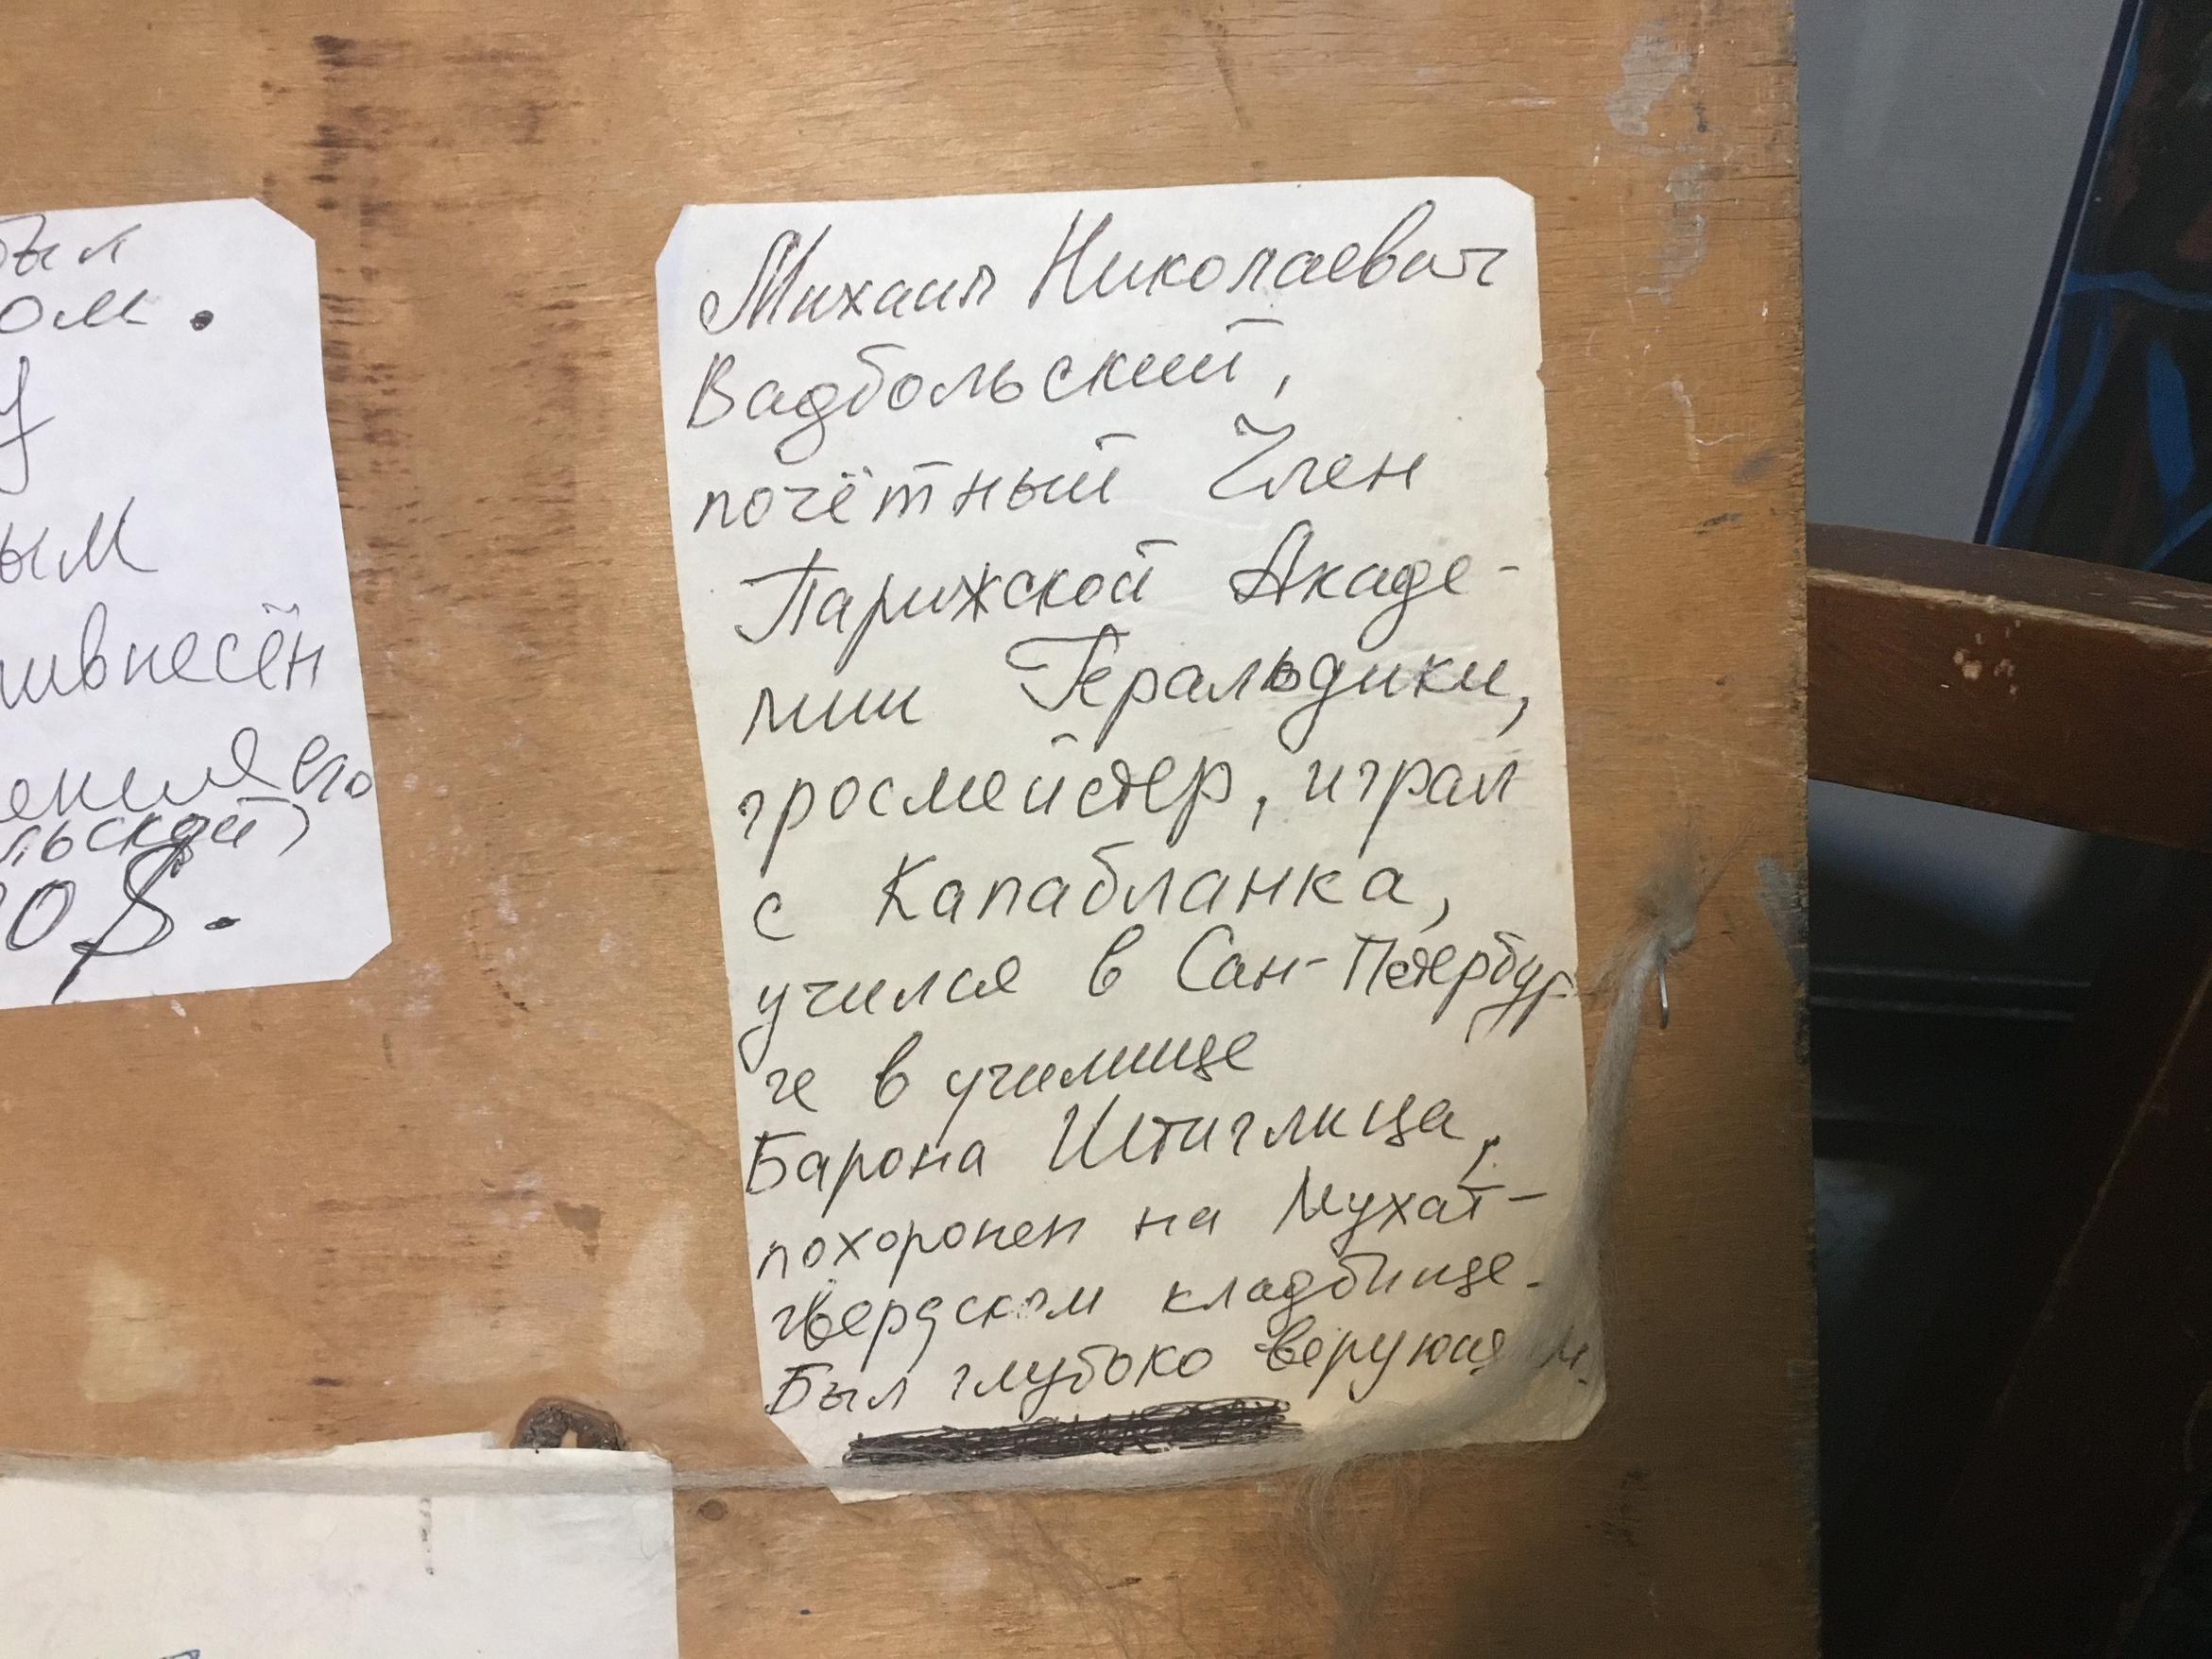 был
ом.
у
ым
ивнесён
ения его
льской)
0$.
Михаил Николаевич
Вадбольский,
почётный Член
Парижской Акаде-
мии Геральдики,
гросмейстер, играл
с Капабланка,
учился в Сан-Петербур-
ге в училище
Барона Штиглица,
похоронен на Мухат-
гвердском кладбище.
Был глубоко верующим.